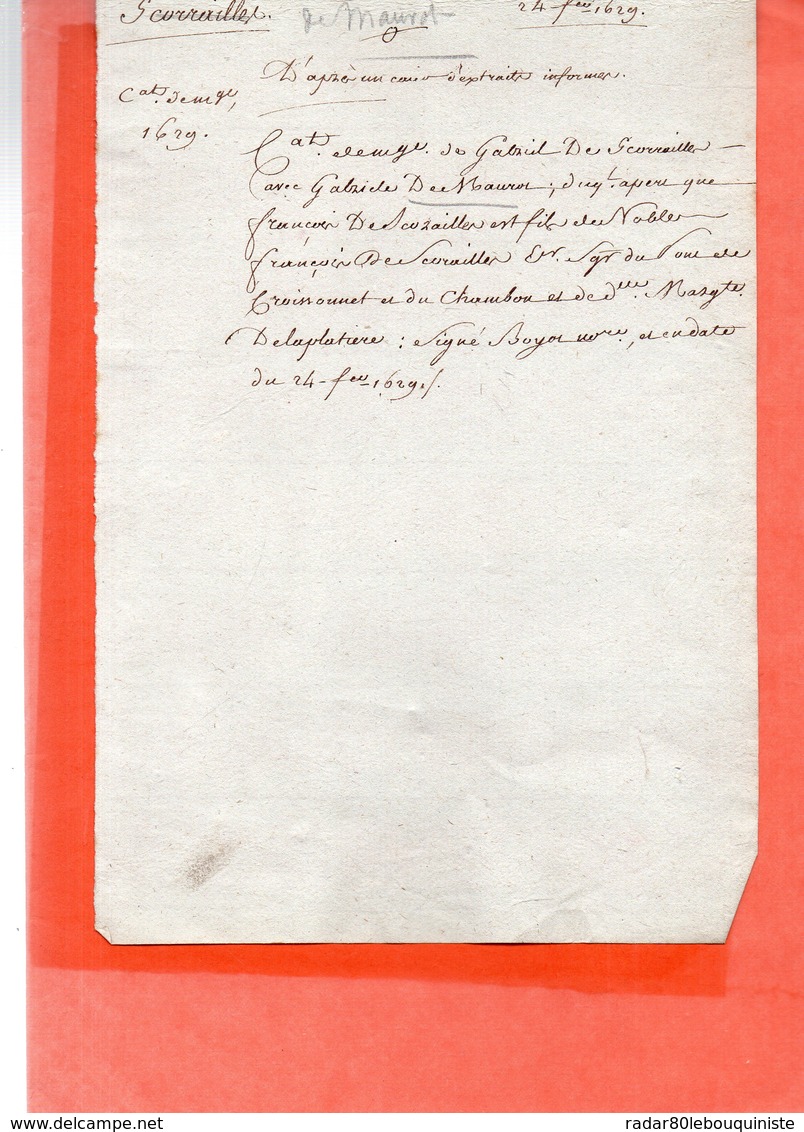 Scorrailles.
de Maurot
24 fer 1629.
D'après un caier d'extraits informes.
Cat. de mge,
1629.
Cat. de mge. de Gabriel De Scorrailles
avec Gabriele De Maurot, duql. apert que
françois De Scorailles est fils de Noble
françois De Scorailles Er. Sgr du Pont de
Croissonnet et du Chambon et de dlle Margte.
Delaplatiere : signé Boyot nore, et en date
du 24 fer 1629./.
© delcampe.net
radar80lebouquiniste